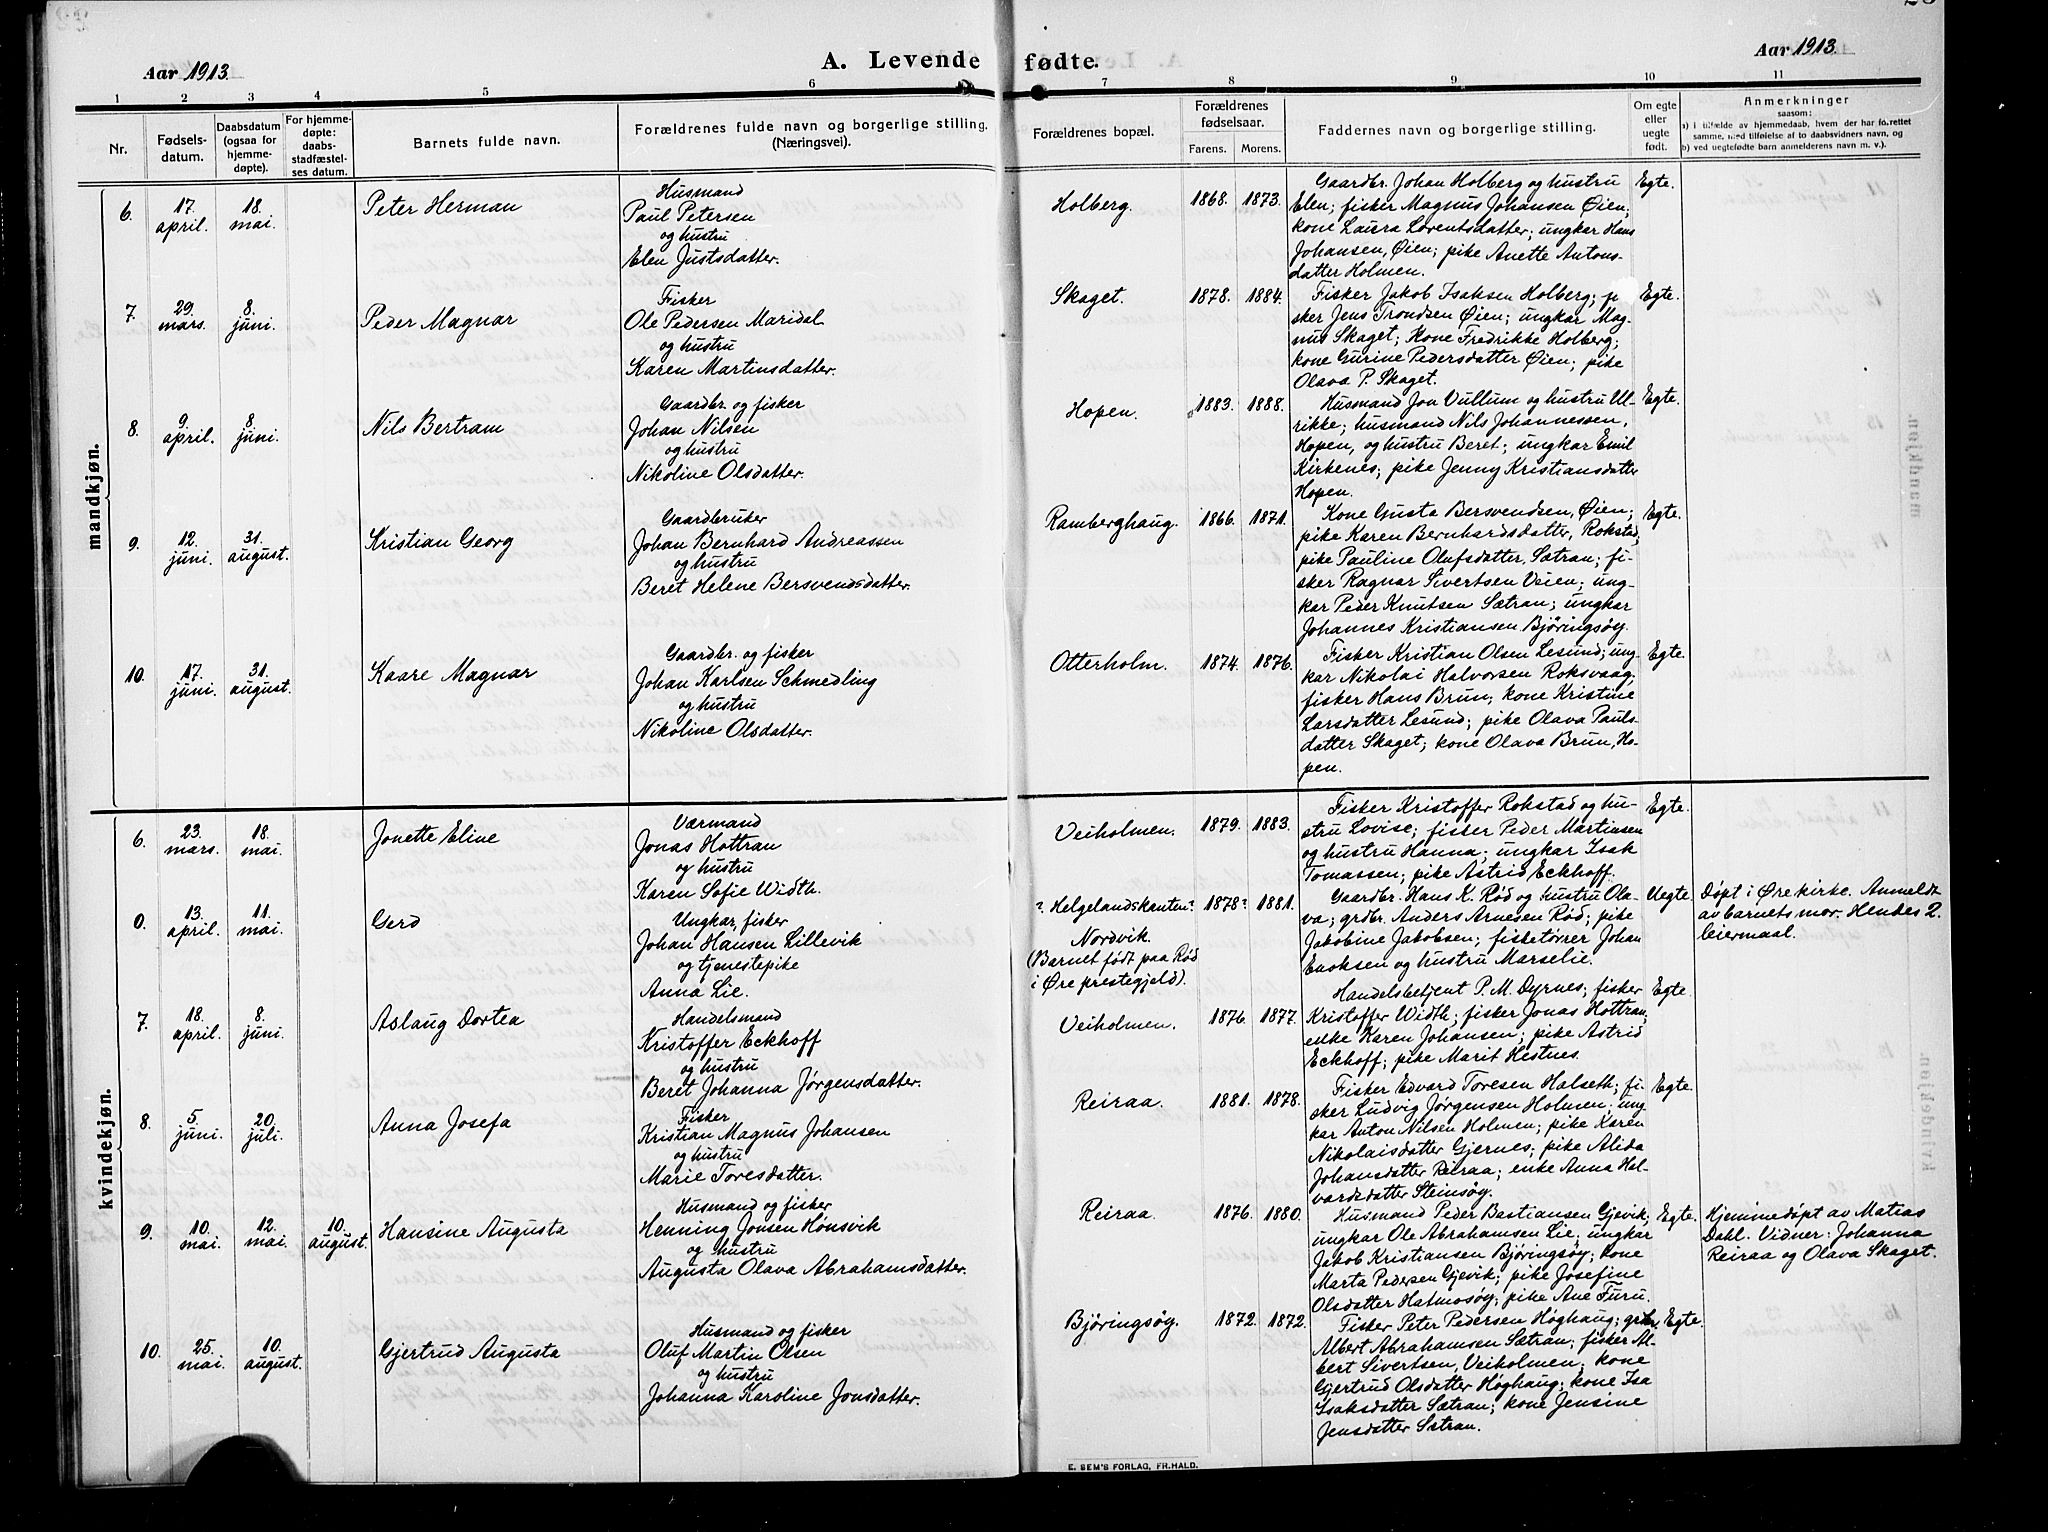 Aar 1913.
A. Levende fødte.
Aar 1913.
1 2 3 4 5 6 7 8 9 10 11
Nr.
Fødsels-
datum.
Daabsdatum
(ogsaa for
hjemme-
døpte).
For hjemme-
døpte:
daabs-
stadfæstel-
ses datum.
Barnets fulde navn.
Forældrenes fulde navn og borgerlige stilling.
(Næringsvei).
Forældrenes bopæl.
Forældrenes
fødselsaar.
Farens. Morens.
Faddernes navn og borgerlige stilling.
Om egte
eller
uegte
født.
Anmerkninger
saasom:
a) i tilfælde av hjemmedaab, hvem der har forrettet
samme, med tilføielse af to daabsvidners navn, og
b) ved uegtefødte barn anmelderens navn m. v.).
mandkjøn.
6.
17.
april.
18.
mai.
Peter Herman
Husmand
Paul Petersen
og hustru
Elen Justsdatter.
Holberg.
1868. 1873.
Gaardbr. Johan Holberg og hustru
Elen; fisker Magnus Johansen Øien;
kone Laura Lorentsdatter; ungkar Hans
Johansen, Øien; pike Anette Antons-
datter Holmen.
Egte.
7.
29.
mars.
8.
juni.
Peder Magnar
Fisker
Ole Pedersen Maridal
og hustru
Karen Martinsdatter.
Skaget.
1878. 1884.
Fisker Jakob Isaksen Holberg; fi
sker Jens Trondsen Øien; ungkar Mag-
nus Skaget; Kone Fredrikke Holberg;
kone Gurine Pedersdatter Øien; pike
Olava P. Skaget.
Egte.
8.
9.
april.
8.
juni.
Nils Bertram
Gaardbr. og fisker
Johan Nilsen
og hustru
Nikoline Olsdatter.
Hopen.
1883. 1888.
Husmand Jon Vullum og hustru Ul-
rikke; husmand Nils Johannessen,
Hopen, og hustru Beret; ungkar Emil
Kirkenes; pike Jenny Kristiansdatter
Hopen.
Egte.
9.
12.
juni.
31.
august.
Kristian Georg
Gaardbruker
Johan Bernhard Andreassen
og hustru
Beret Helene Bersvendsdatter.
Ramberghaug.
1866. 1871.
Kone Gusta Bersvendsen, Øien;
pike Karen Bernhardsdatter, Rokstad;
pike Pauline Olufsdatter, Sætran; fi-
sker Ragnar Sivertsen Veien; ung-
kar Peder Knutsen Sætran; ungkar
Johannes Kristiansen Bjøringsøy.
Egte.
10.
17.
juni.
31.
august.
Kaare Magnar
Gaardbr. og fisker
Johan Karlsen Schmedling
og hustru
Nikoline Olsdatter.
Otterholm.
1874. 1876.
Fisker Kristian Olsen Lesund; ung-
kar Nikolai Halvorsen Roksvaag;
fisker Hans Brun; kone Kristine
Larsdatter Lesund; pike Olava Pauls-
datter Skaget; kone Olava Brun, Ho-
pen.
Egte.
kvindekjøn.
6.
23.
mars.
18.
mai.
Jonette Eline
Værmand
Jonas Hottran
og hustru
Karen Sofie Width.
Veiholmen.
1879. 1883.
Fisker Kristoffer Rokstad og hu-
stru Lovise; fisker Peder Martinsen
og hustru Hanna; ungkar Isak
Tomassen; pike Astrid Eckhoff.
Egte.
0.
13.
april.
11.
mai.
Gerd
Ungkar, fisker
Johan Hansen Lillevik
og tjenestepike
Anna Lie.
? Helgelandskanten?
Nordvik.
(Barnet født paa Rød
i Øre prestegjeld).
1878? 1881.
Gaardbr. Hans K. Rød og hustru Ola-
va; grdbr. Anders Arnesen Rød; pike
Jakobine Jakobsen; fisketører Johan
Enoksen og hustru Marselie.
Uegte.
Døpt i Øre kirke. Anmeldt
av barnets mor. Hendes 2.
leiermaal.
7.
18.
april.
8.
juni.
Aslaug Dortea
Handelsmand
Kristoffer Eckhoff
og hustru
Beret Johanna Jørgensdatter.
Veiholmen.
1876. 1877.
Handelsbetjent P. M. Dyrnes; fisker
Kristoffer Width; fisker Jonas Hottran;
enke Karen Johansen; pike Astrid
Eckhoff; pike Marit Hestnes.
Egte.
8.
5.
juni.
20.
juli.
Anna Josefa
Fisker
Kristian Magnus Johansen
og hustru
Marie Toresdatter.
Reiraa.
1881. 1878.
Fisker Edvard Toresen Halseth; fi-
sker Ludvig Jørgensen Holmen; ung
kar Anton Nilsen Holmen; pike Karen
Nikolaisdatter Gjernes; pike Alida
Johansdatter Reiraa; enke Anna Hal-
vardsdatter Steinsøy.
Egte.
9.
10.
mai.
12.
mai.
10.
august.
Hansine Augusta
Husmand og fisker
Henning Jonsen Honsvik
og hustru
Augusta Olava Abrahamsdatter.
Reiraa.
1876. 1880.
Husmand Peder Bastiansen Gjevik;
ungkar Ole Abrahamsen Lie; ungkar
Jakob Kristiansen Bjøringsøy; kone
Marta Pedersen Gjevik; pike Josefine
Olsdatter Hatmosøy; pike Ane Furu.
Egte.
Hjemmedøpt av Matias
Dahl. Vidner: Johanna
Reiraa og Olava Skaget.
10.
25.
mai.
10.
august.
Gjertrud Augusta
Husmand og fisker
Oluf Martin Olsen
og hustru
Johanna Karoline Jonsdatter.
Bjøringsøy.
1872. 1872.
Fisker Peter Pedersen Høghaug; grdbr.
Albert Abrahamsen Sætran; fisker Al-
bert Sivertsen, Veiholmen; kone
Gjertrud Olsdatter Høghaug; kone Isa
Isaksdatter Sætran; kone Jensine
Jensdatter Sætran.
Egte.
E. SEM'S FORLAG, FR.HALD.